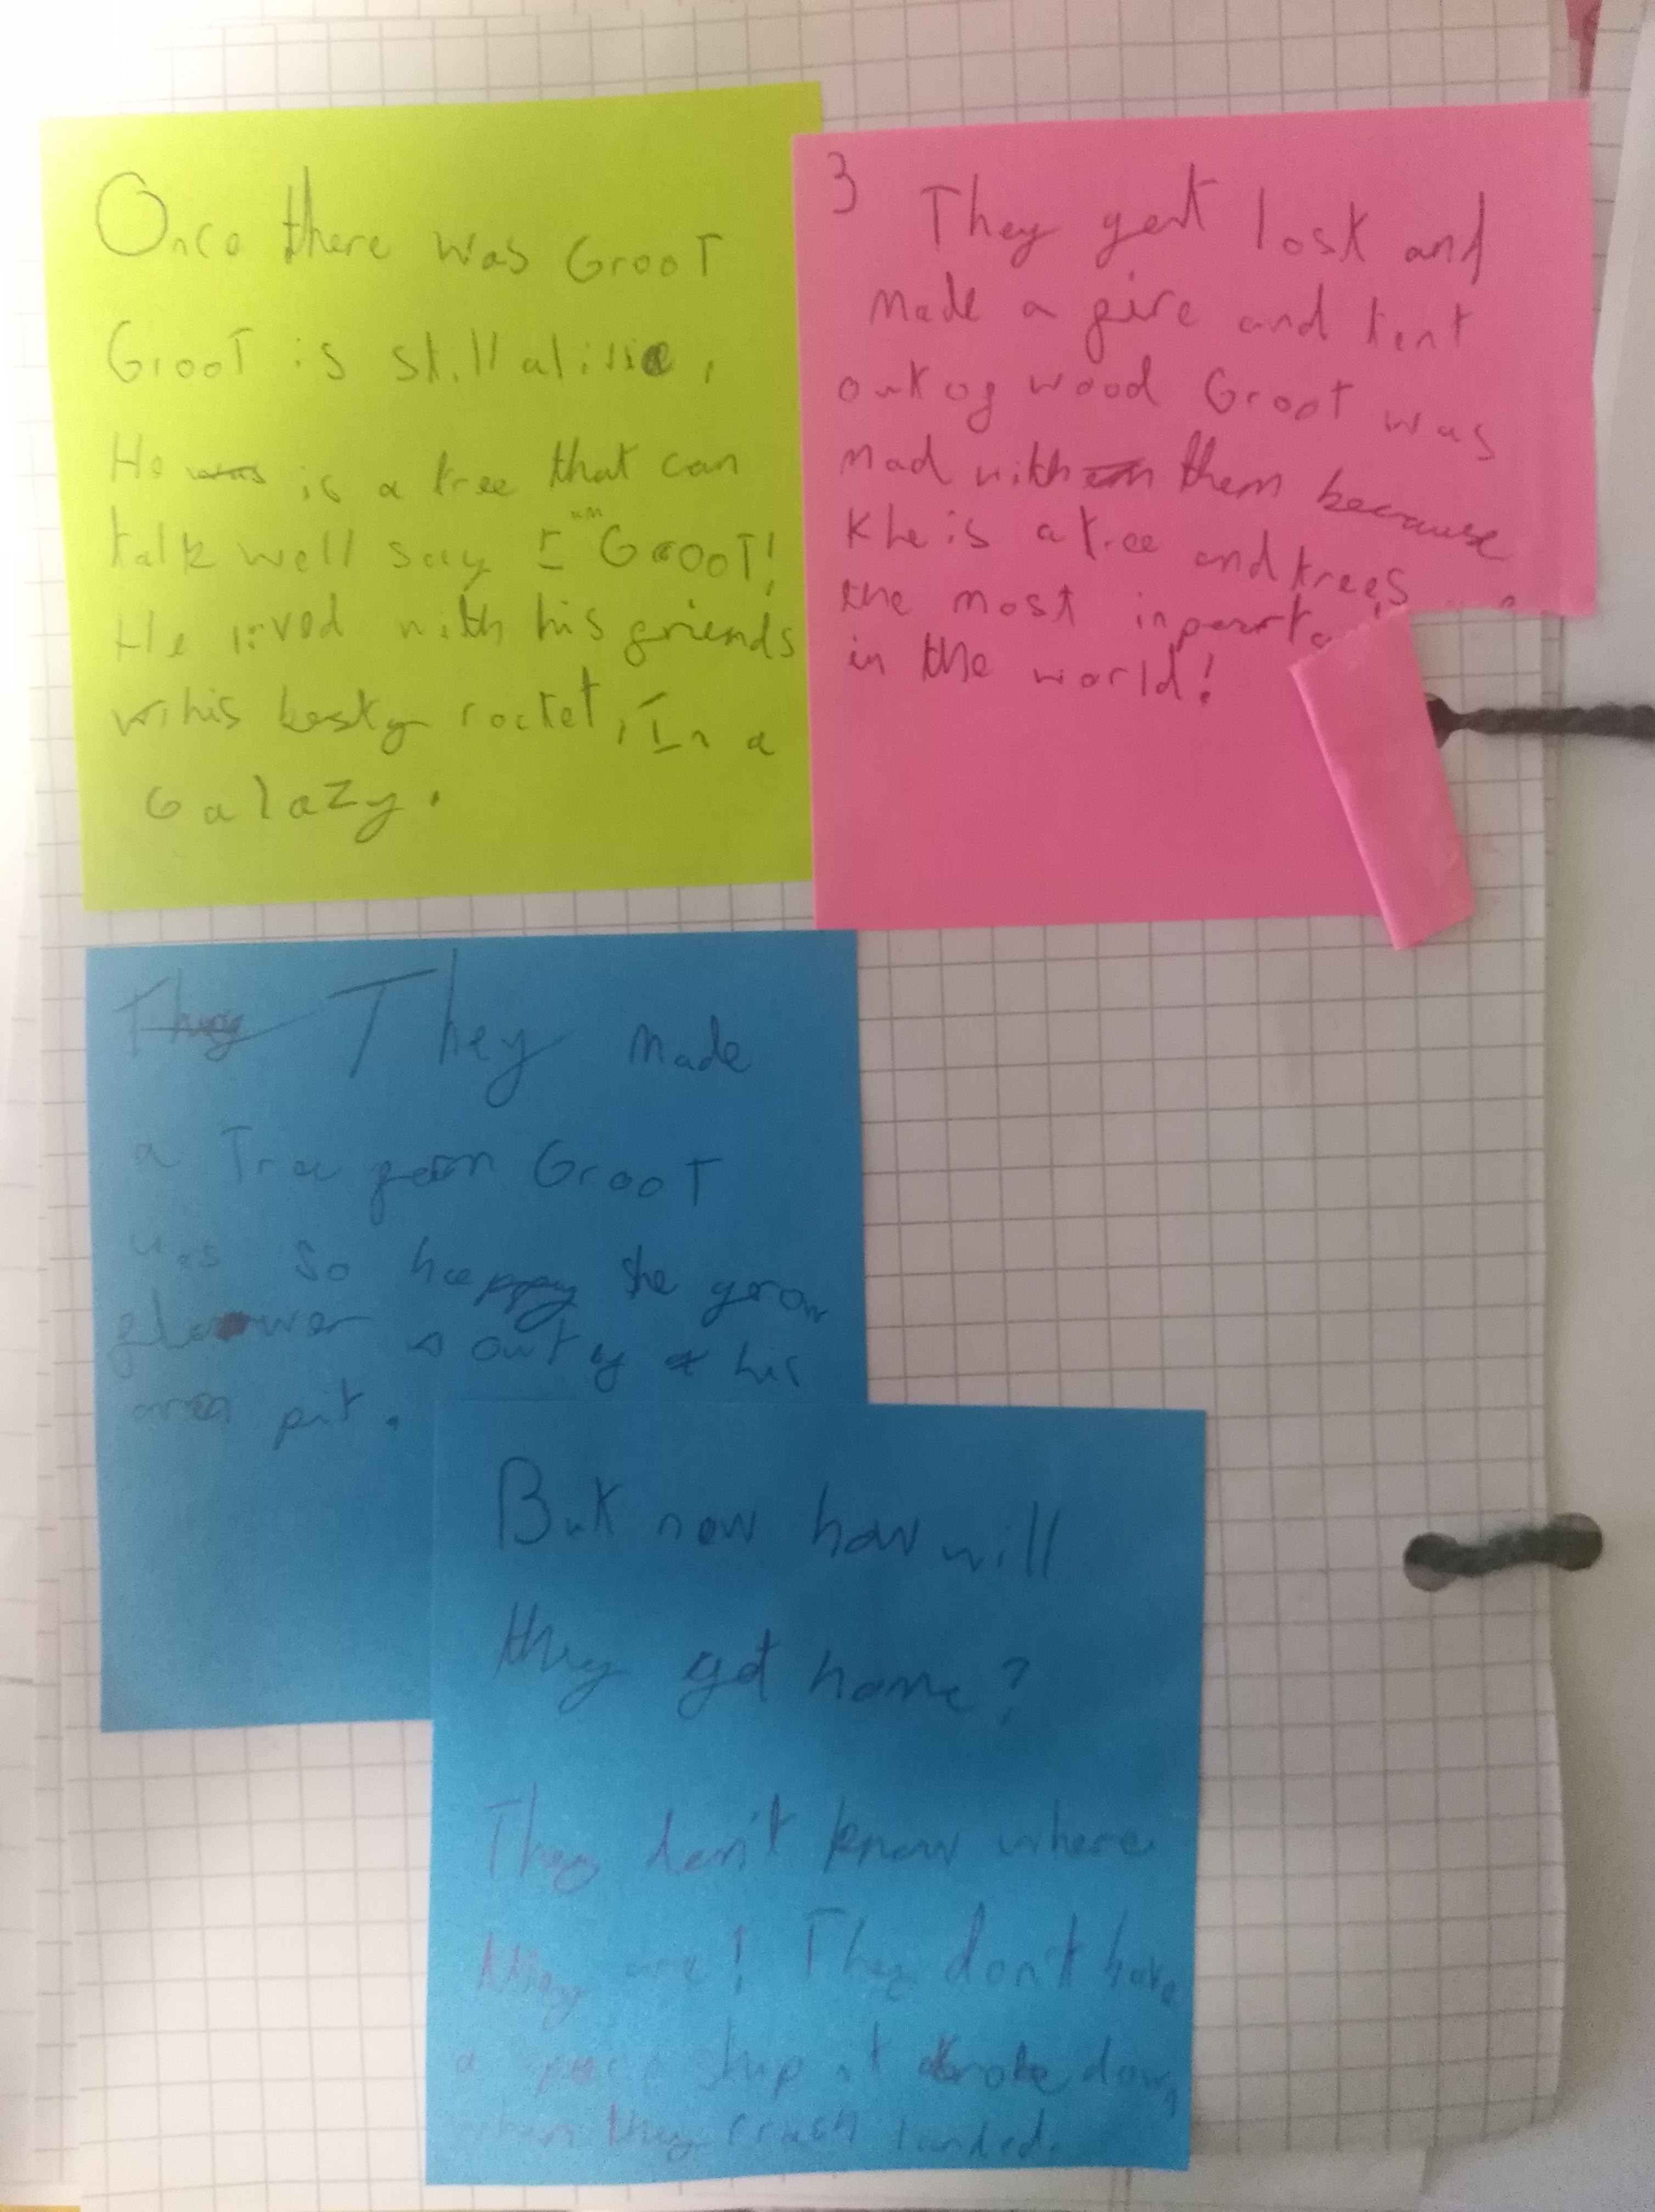 Once there was GrooT
GrooT is still alive,
He was is a tree that can
talk well say I am GrooT!
He lived with his friends
whis besty rocket, In a
Galazy.
3 They get lost and
made a fire and tent
out of wood Groot was
mad with them because
he is a tree and trees
the most inporta
in the world!
They They made
a Tree farm GrooT
was so happy he grow
flowers out of his
arm pit.
But now how will
they get home?
They don't know where
they are! They don't have
a space ship it broke down
when they crash landed.